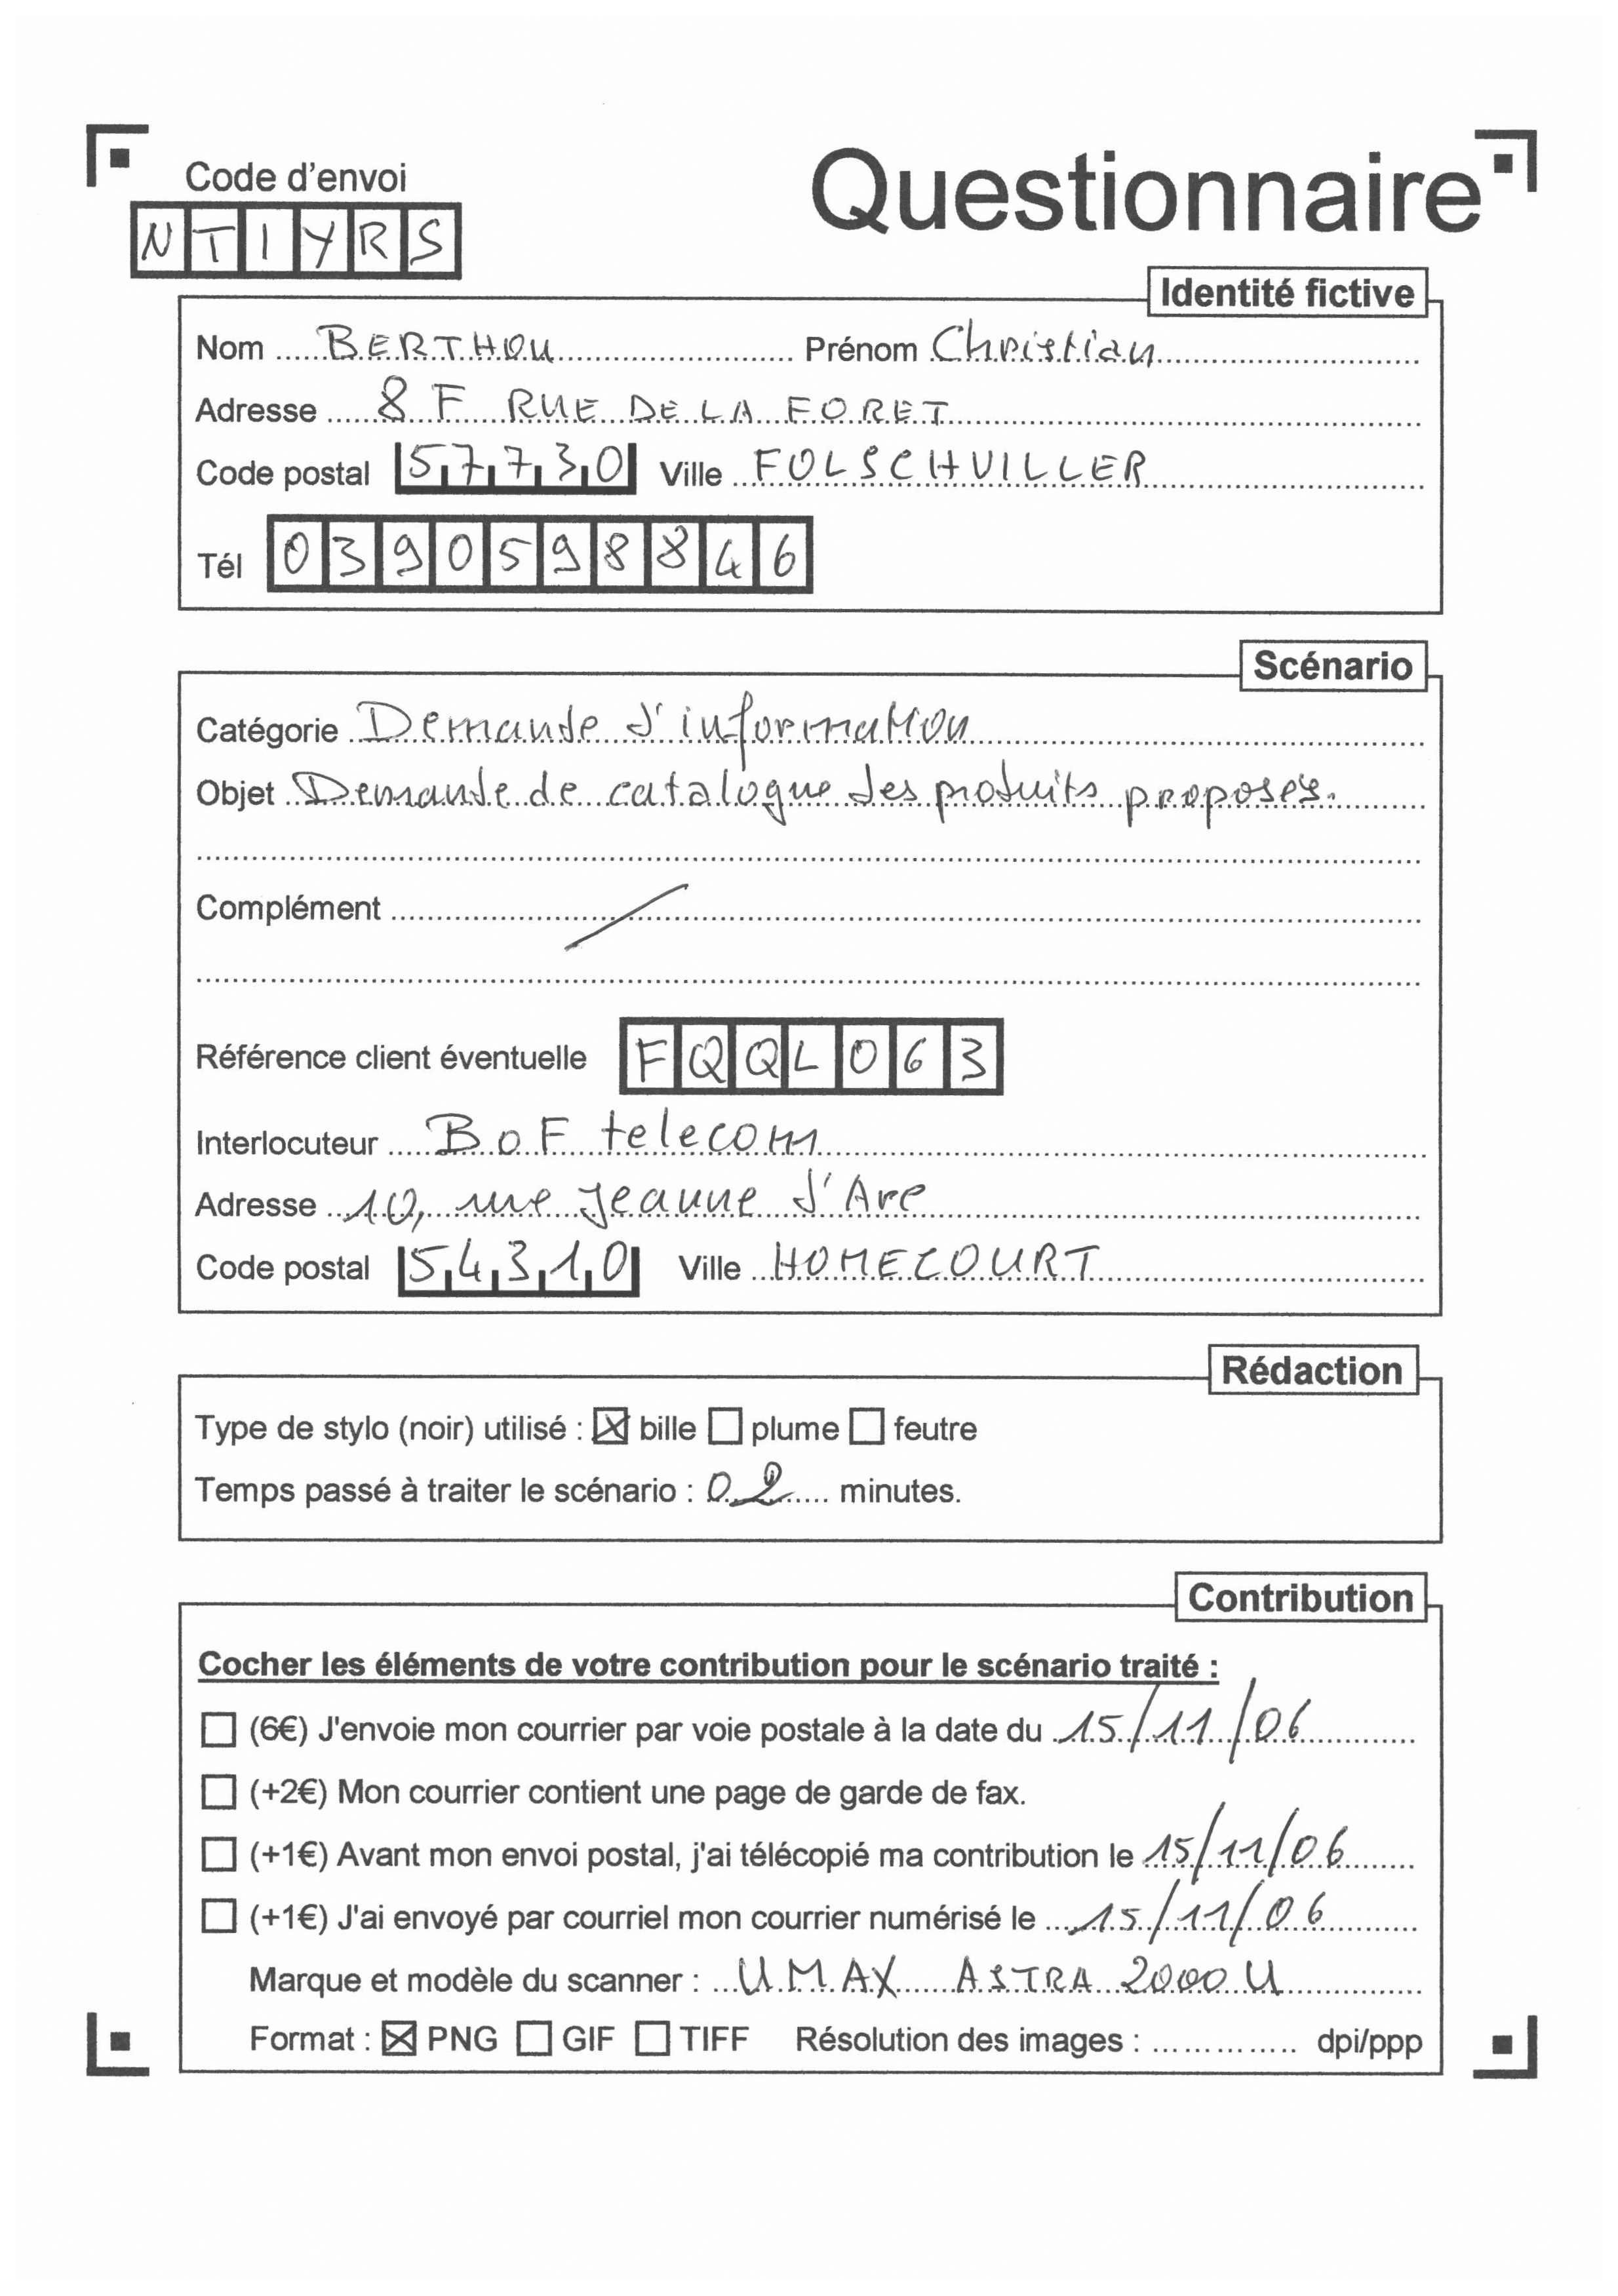 Code d'envoi
Questionnaire
NTIYRS
Identité fictive
Nom BERTHOU Prénom Christian
Adresse 8 F RUE DE LA FORET
Code postal 57730 Ville FOLSCHVILLER
Tél 0390598846
Scénario
Catégorie Demande d'information
Objet Demande de catalogue des produits proposés.
Complément /
Référence client éventuelle FQQL063
Interlocuteur BoF telecom
Adresse 10, rue Jeanne d'Arc
Code postal 54310 Ville HOMECOURT
Rédaction
Type de stylo (noir) utilisé : ☒ bille ☐ plume ☐ feutre
Temps passé à traiter le scénario : 02 minutes.
Contribution
Cocher les éléments de votre contribution pour le scénario traité :
☐ (6€) J'envoie mon courrier par voie postale à la date du 15/11/06
☐ (+2€) Mon courrier contient une page de garde de fax.
☐ (+1€) Avant mon envoi postal, j'ai télécopié ma contribution le 15/11/06
☐ (+1€) J'ai envoyé par courriel mon courrier numérisé le 15/11/06
Marque et modèle du scanner : UMAX ASTRA 2000 U
Format : ☒ PNG ☐ GIF ☐ TIFF Résolution des images : .............. dpi/ppp